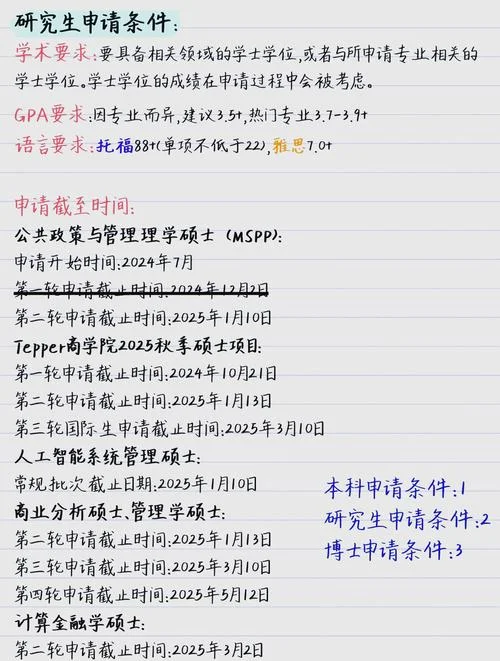 研究生申请条件:
学术要求:要具备相关领域的学士学位,或者与所申请专业相关的
学士学位。学士学位的成绩在申请过程中会被考虑。
GPA要求:因专业而异,建议3.5+,热门专业3.7-3.9+
语言要求:托福88+(单项不低于22),雅思7.0+
申请截至时间:
公共政策与管理理学硕士 (MSPP):
申请开始时间:2024年7月
第一轮申请截止时间:2024年12月2日
第二轮申请截止时间:2025年1月10日
Tepper商学院2025秋季硕士项目:
第一轮申请截止时间:2024年10月21日
第二轮申请截止时间:2025年1月13日
第三轮国际生申请截止时间:2025年3月10日
人工智能系统管理硕士:
常规批次截止日期:2025年1月10日
商业分析硕士、管理学硕士:
第二轮申请截止时间:2025年1月13日
第三轮申请截止时间:2025年3月10日
第四轮申请截止时间:2025年5月12日
计算金融学硕士:
第二轮申请截止时间:2025年3月2日
本科申请条件:1
研究生申请条件:2
博士申请条件:3